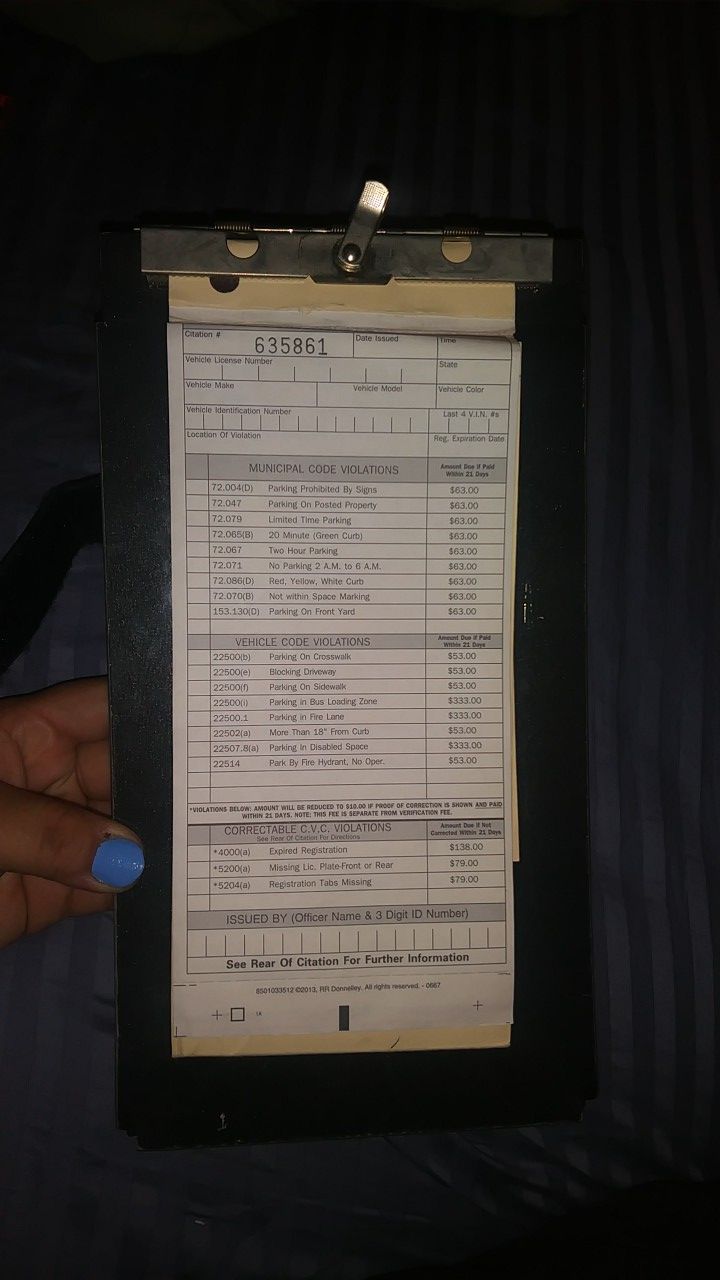 Citation # 635861 Date Issued Time
Vehicle License Number State
Vehicle Make Vehicle Model Vehicle Color
Vehicle Identification Number Last 4 V.I.N. #s
Location Of Violation Reg. Expiration Date
MUNICIPAL CODE VIOLATIONS Amount Due if Paid Within 21 Days
72.004(D) Parking Prohibited By Signs $63.00
72.047 Parking On Posted Property $63.00
72.079 Limited Time Parking $63.00
72.065(B) 20 Minute (Green Curb) $63.00
72.067 Two Hour Parking $63.00
72.071 No Parking 2 A.M. to 6 A.M. $63.00
72.086(D) Red, Yellow, White Curb $63.00
72.070(B) Not within Space Marking $63.00
153.130(D) Parking On Front Yard $63.00
VEHICLE CODE VIOLATIONS Amount Due if Paid Within 21 Days
22500(b) Parking On Crosswalk $53.00
22500(e) Blocking Driveway $53.00
22500(f) Parking On Sidewalk $53.00
22500(i) Parking in Bus Loading Zone $333.00
22500.1 Parking in Fire Lane $333.00
22502(a) More Than 18" From Curb $53.00
22507.8(a) Parking In Disabled Space $333.00
22514 Park By Fire Hydrant, No Oper. $53.00
*VIOLATIONS BELOW: AMOUNT WILL BE REDUCED TO $10.00 IF PROOF OF CORRECTION IS SHOWN AND PAID
WITHIN 21 DAYS. NOTE; THIS FEE IS SEPARATE FROM VERIFICATION FEE.
CORRECTABLE C.V.C. VIOLATIONS Amount Due if Not Corrected Within 21 Days
See Rear Of Citation For Directions
*4000(a) Expired Registration $138.00
*5200(a) Missing Lic. Plate-Front or Rear $79.00
*5204(a) Registration Tabs Missing $79.00
ISSUED BY (Officer Name & 3 Digit ID Number)
See Rear Of Citation For Further Information
8501033512 ©2013, RR Donnelley. All rights reserved. - 0667
1A